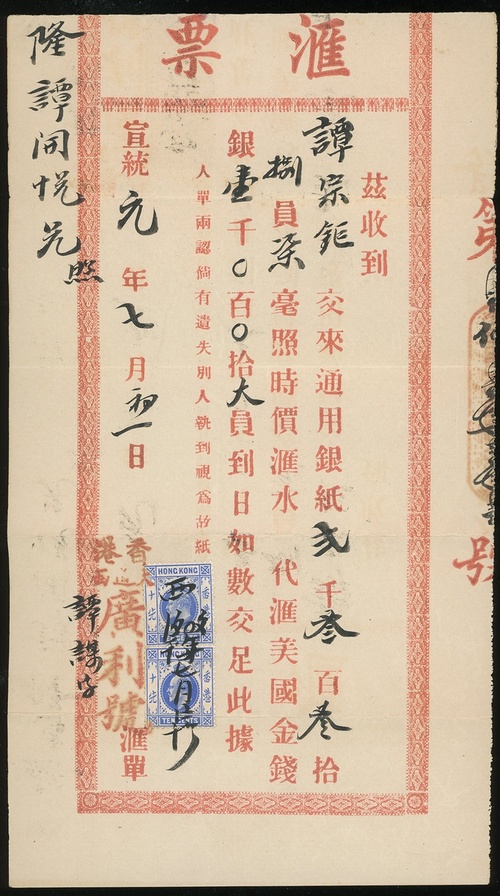 滙票
茲收到
譚宗鉅交來通用銀紙弍千叁百叁拾
捌員柒毫照時價滙水代滙美國金錢
銀壹千〇百〇拾大員到日如數交足此據
人單兩認倘有遺失別人執到視爲故紙
宣統元年七月初一日
香港
廣利號
滙單
隆譚開悅兄照
HONG KONG
香港
TEN CENTS
號